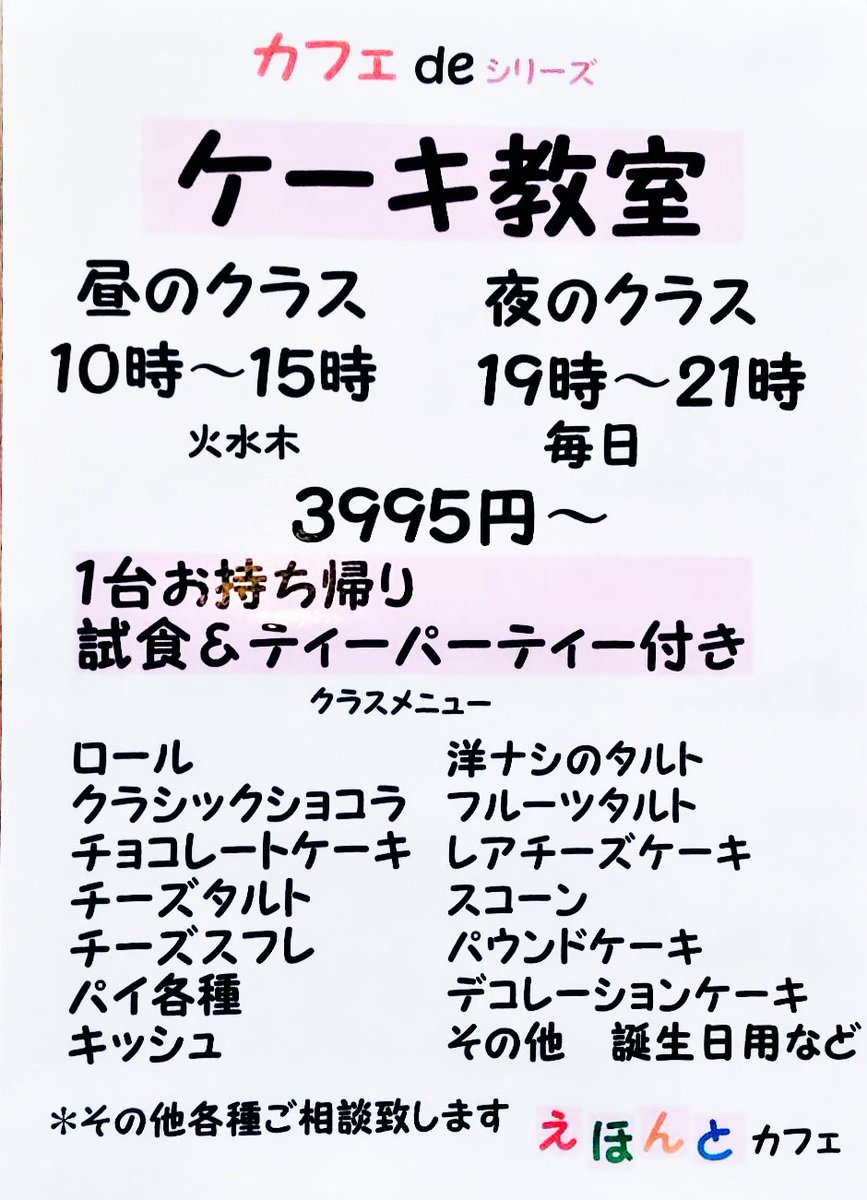 カフェ de シリーズ
ケーキ教室
昼のクラス 夜のクラス
10時〜15時 19時〜21時
火水木 毎日
3995円〜
1台お持ち帰り
試食&ティーパーティー付き
クラスメニュー
ロール 洋ナシのタルト
クラシックショコラ フルーツタルト
チョコレートケーキ レアチーズケーキ
チーズタルト スコーン
チーズスフレ パウンドケーキ
パイ各種 デコレーションケーキ
キッシュ その他 誕生日用など
*その他各種ご相談致します
えほんとカフェ